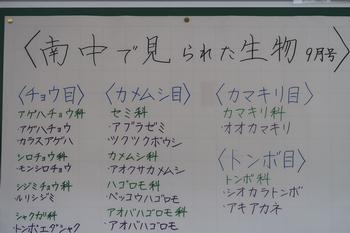 〈南中で見られた生物 9月号〉
〈チョウ目〉
アゲハチョウ科
・アゲハチョウ
・カラスアゲハ
シロチョウ科
・モンシロチョウ
シジミチョウ科
・ルリシジミ
シャクガ科
・トンボエダシャク
〈カメムシ目〉
セミ科
・アブラゼミ
・ツクツクボウシ
カメムシ科
・アオクサカメムシ
ハゴロモ科
・ベッコウハゴロモ
アオバハゴロモ科
・アオバハゴロモ
〈カマキリ目〉
カマキリ科
・オオカマキリ
〈トンボ目〉
トンボ科
・シオカラトンボ
・アキアカネ